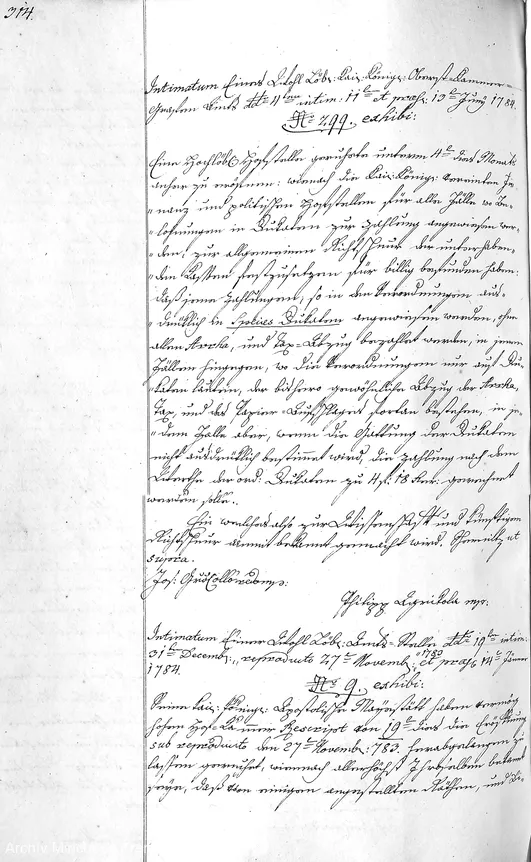 314.
Intimatum Eines Lobl: Kais: Königl: Oberst-Kammer-
Grafen Amts ddto 4ten intim: 11ten et praes: 13ten Juny 1784.
No 499. exhibi:
Eine Hochlöbl Hofstelle geruhete unterm 4ten dies Monats
anher zu eröfnen: wienach die Kais: Königl: vereinten Fi-
nanz und politischen Hofstellen für alle Fälle wo Be-
lohnungen in Dukaten zur Zahlung angewiesen wer-
den, zur allgemeinen Richtschnur der unterhaben-
den Kassen festzusetzen für billig befunden haben:
daß jene Zahlungen, so in den Verordnungen aus-
drücklich in Species Dukaten angewiesen werden, ohne
allen Arrha, und Tax-Abzug bezahlet werden, in jenen
Fällen hingegen, wo die Verordnungen nur auf Du-
katen lauten, der bishero gewöhnliche Abzug der Arrha,
Tax, und des Papier-Aufschlages fortan bestehen, in je-
dem Falle aber, wenn die Gattung der Dukaten
nicht ausdrücklich bestimmt wird, die Zahlung nach dem
der ord: Dukaten zu 4 f: 18 Xer: gerechnet
werden solle.
Ein welches also zur Wissenschaft und künftigen
Richtschnur anmit bekannt gemacht wird. Schemnitz ut
supra.
Jos: Gr: Colloredo mp:
Philipp Agrikola mp:
Intimatum Einer Lobl: Amts-Stelle ddto 19ten intim:
31ten Decemb:, reproducto 27ten Novemb: 1783 et praes: 14ten Jäner
1784.
No 9. exhibi:
Seine Kais: Königl: Apostolische Mayestätt haben vermög
hohen Hof-Kammer Rescript von 19ten dies die Entschließung
sub reproducto den 27ten Novemb: 783. herabgelangen zu
lassen geruhet, wienach allerhöchst Ihroselben bekannt
seye, daß von einigen angestellten Räthen, und Be-